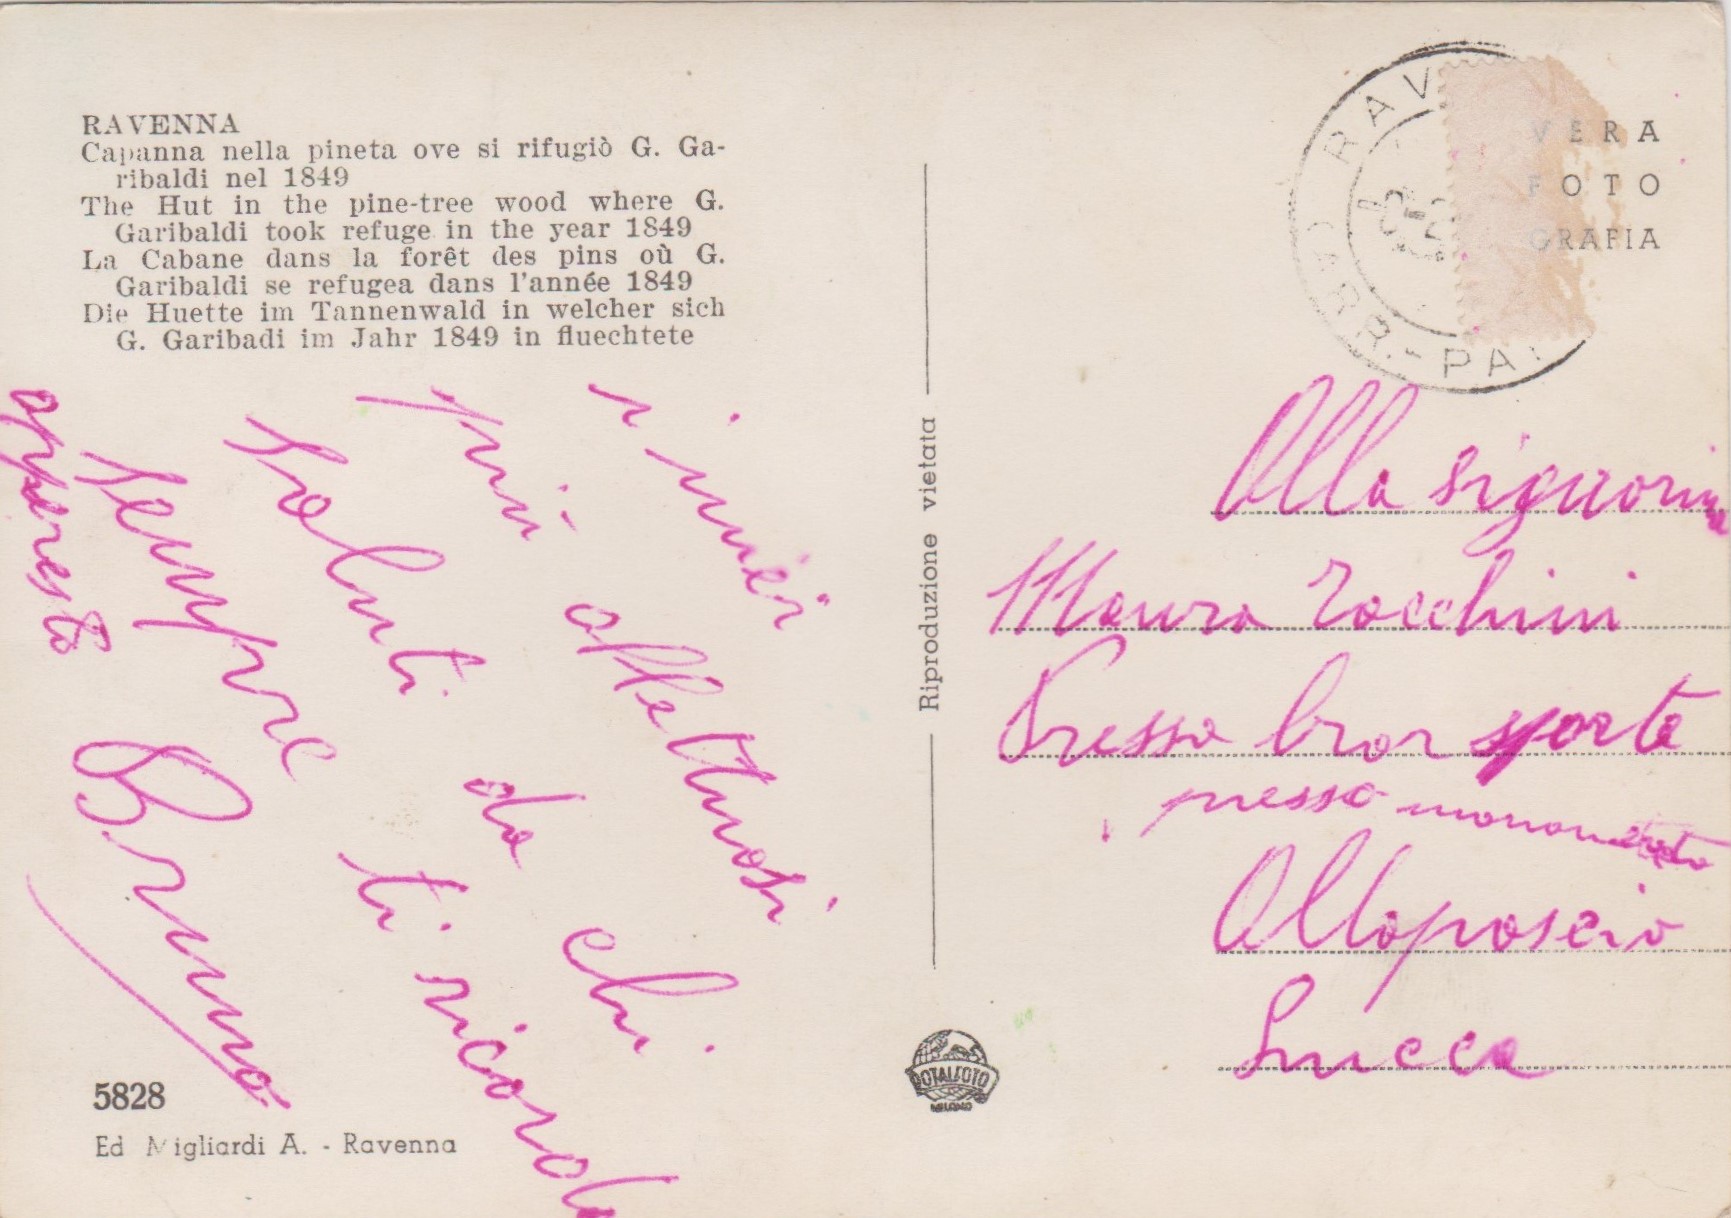 RAVENNA
Capanna nella pineta ove si rifugiò G. Ga-
ribaldi nel 1849
The Hut in the pine-tree wood where G.
Garibaldi took refuge in the year 1849
La Cabane dans la forêt des pins où G.
Garibaldi se refugea dans l'année 1849
Die Huette im Tannenwald in welcher sich
G. Garibadi im Jahr 1849 in fluechtete
i miei
più affettuosi
saluti da chi
sempre ti ricorda
a presto
Bruno
5828
Ed Migliardi A. - Ravenna
Riproduzione vietata
ROTALFOTO
MILANO
RAV
ARR.-PA
VERA
FOTO
GRAFIA
Alla signorina
Maura Tocchini
Presso
presso
Altopascio
Lucca